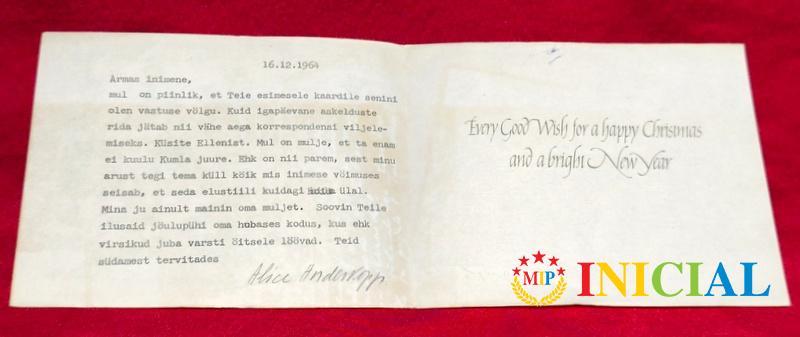 16.12.1964
Armas inimene,
mul on piinlik, et Teie esimesele kaardile senini
olen vastuse võlgu. Kuid igapäevane askelduste
rida jätab nii vähe aega korrespondensi viljele-
miseks. Küsite Ellenist. Mul on mulje, et ta enam
ei kuulu Kumla juure. Ehk on nii parem, sest minu
arust tegi tema küll kõik mis inimese võimuses
seisab, et seda elustiili kuidagi ülal.
Mina ju ainult mainin oma muljet. Soovin Teile
ilusaid jõulupühi oma hubases kodus, kus ehk
virsikud juba varsti õitsele löövad. Teid
südamest tervitades
Alice
Every Good Wish for a happy Christmas
and a bright New Year
MIP INICIAL